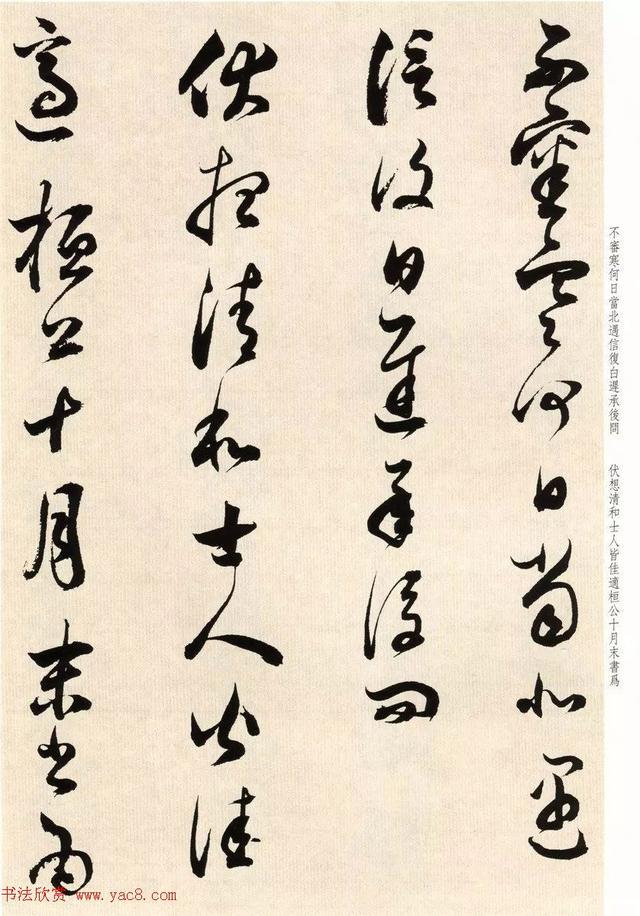 不審寒何日當北遇
信復白遲承後問
伏想清和士人皆佳
適桓公十月末書爲
不審寒何日當北遇信復白遲承後問
伏想清和士人皆佳適桓公十月末書爲
书法欣赏 www.yac8.com